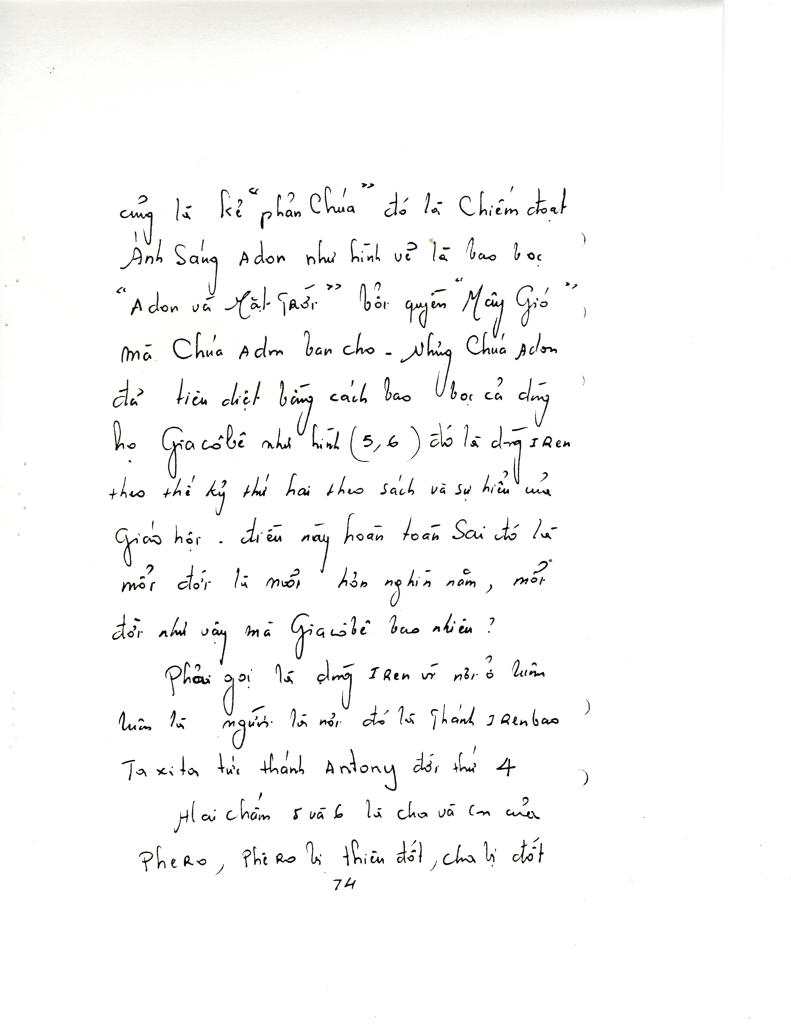 củng là kẻ "phản Chúa" đó là Chiếm đoạt
Ánh Sáng Adon như hình vẽ là bao bọc
"Adon và Mặt Trời" bởi quyền "Mây Gió"
mà Chúa Adon ban cho - Nhưng Chúa Adon
đã tiêu diệt bằng cách bao bọc cả dòng
họ Giacôbê như hình (5,6) đó là dòng IRen
theo thế kỷ thứ hai theo sách và sự hiểu của
Giáo hội. điều này hoàn toàn Sai đó là
mổi đời là mười hơn nghìn năm, mổi
đời như vậy mà Giacôbê bao nhiêu?
Phải gọi là dòng IRen vì nơi ở luôn
luôn là người là nơi đó là Thánh IRenbao
Taxita tức thánh Antony đời thứ 4
Hai chấm 5 và 6 là cha và con của
PheRo, PhêRo bị thiêu đốt, cha bị đốt
74